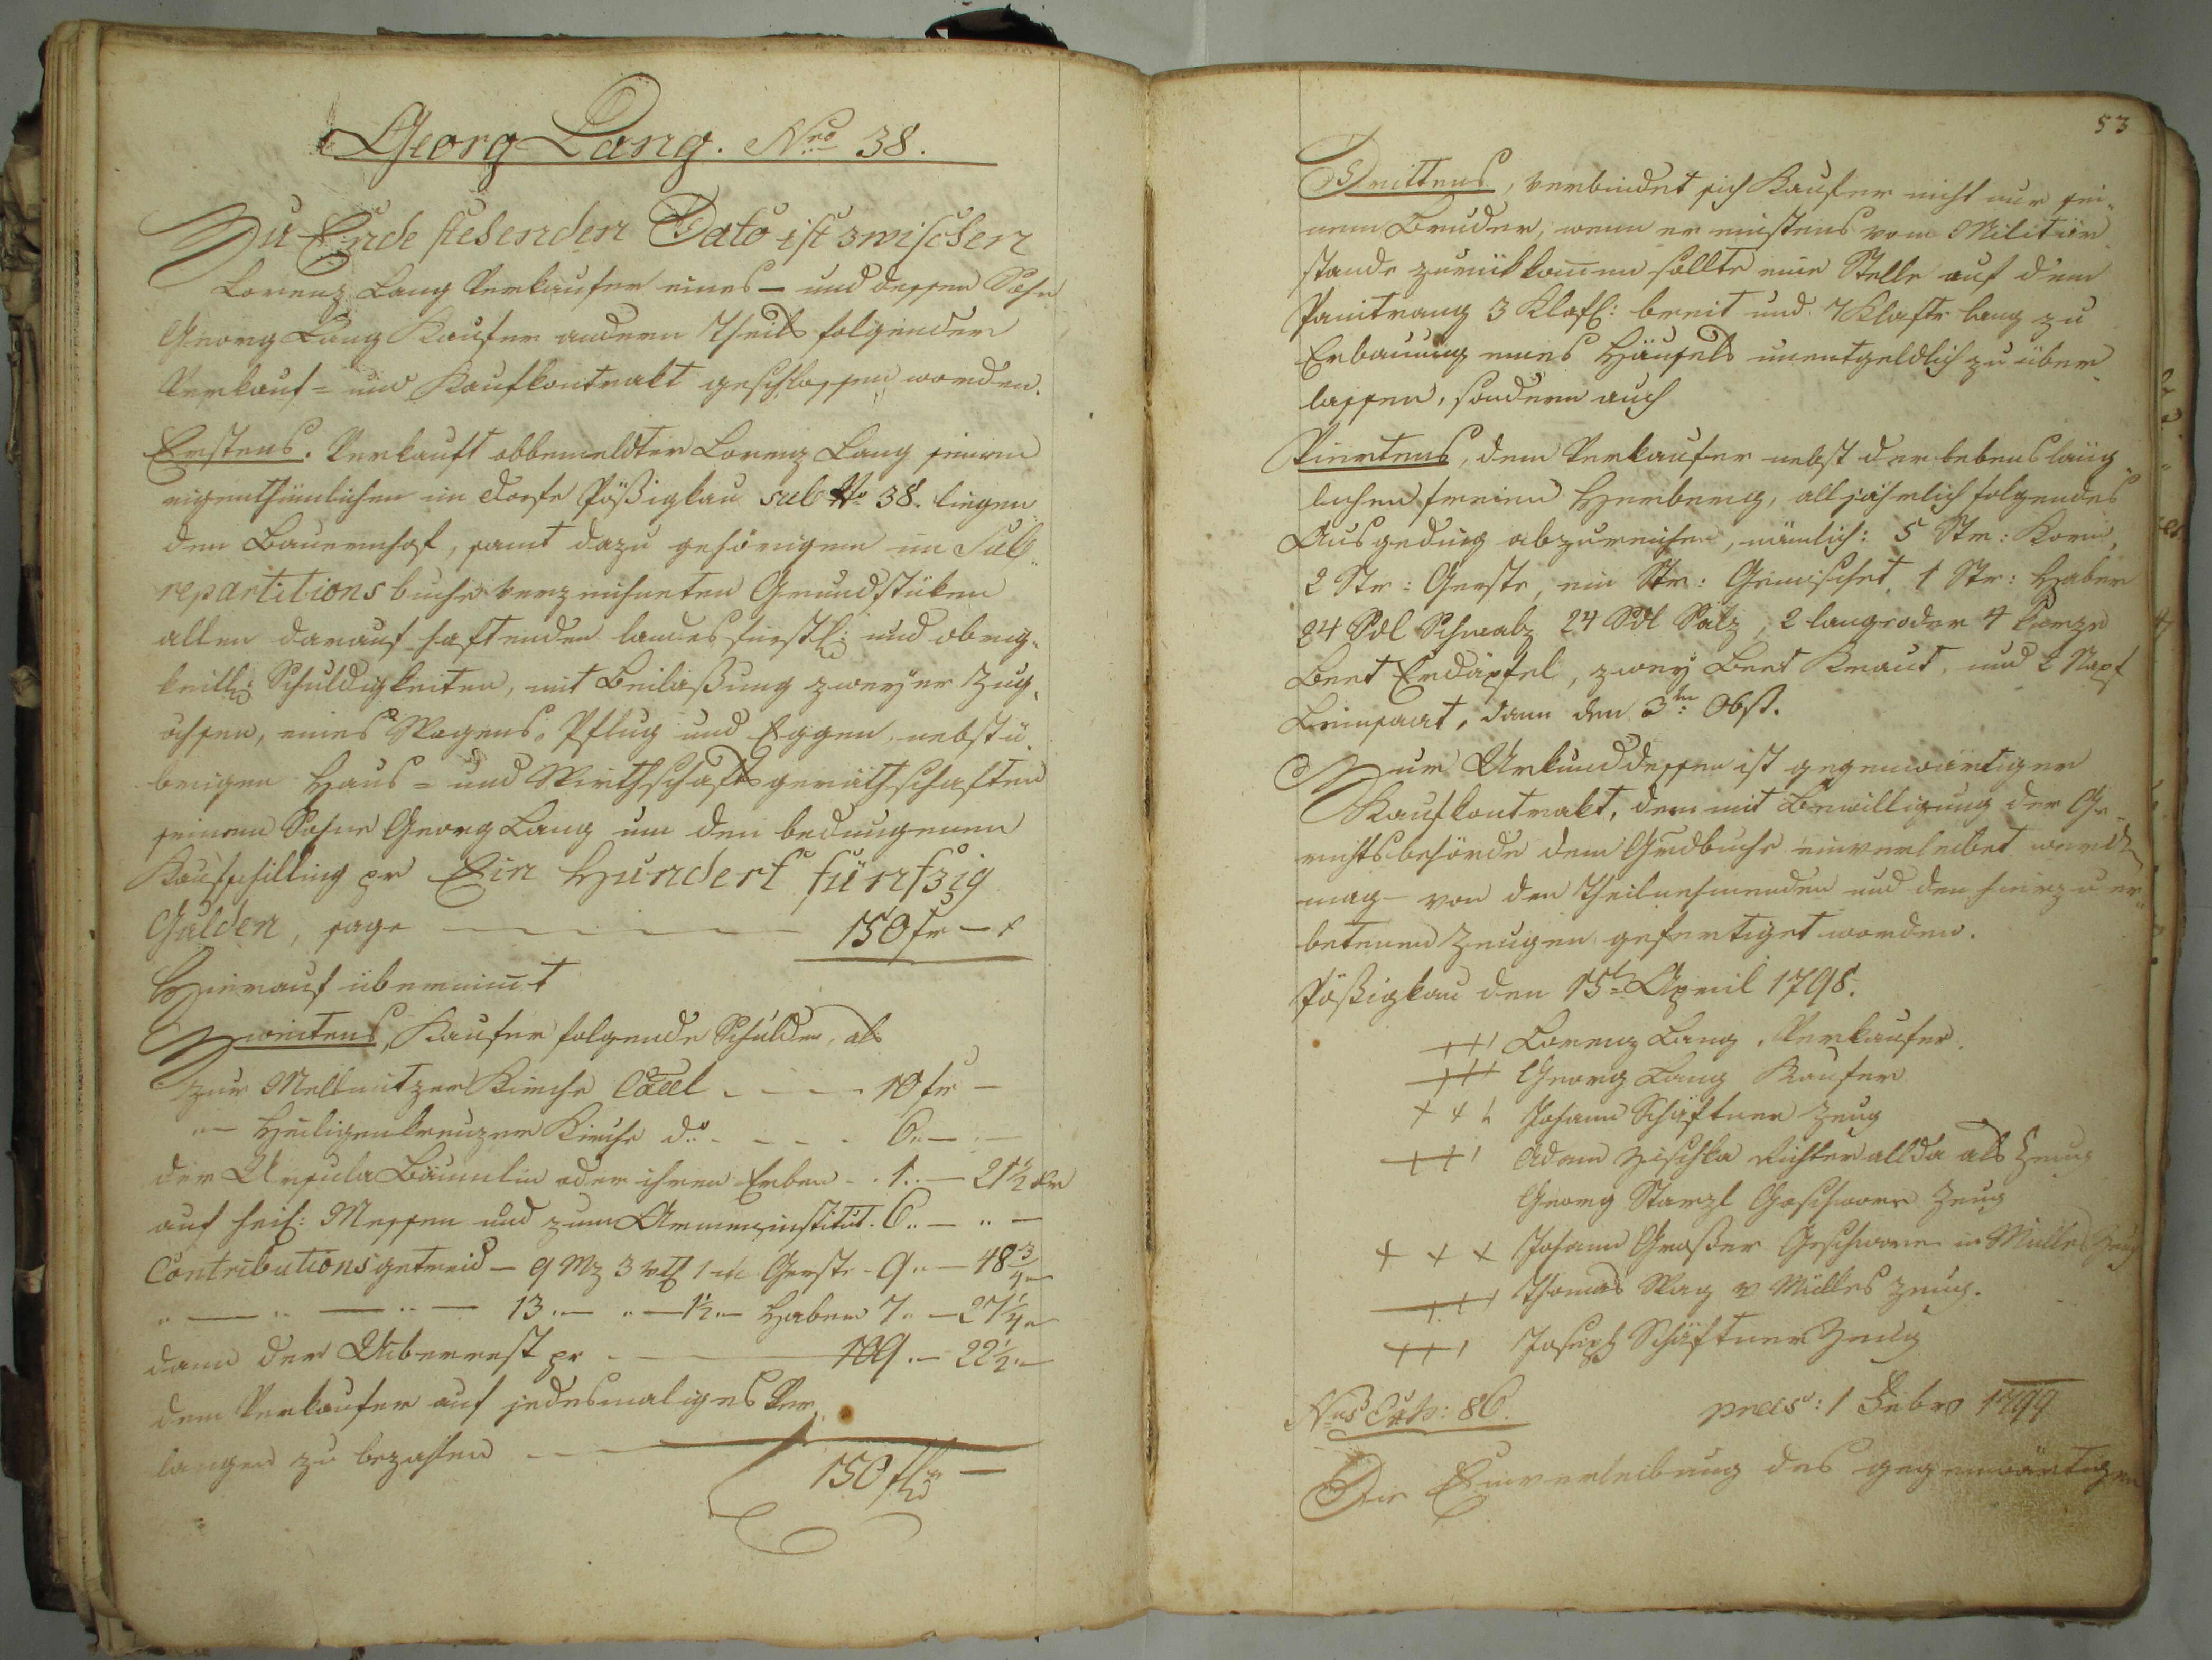 Georg Lang. Nro 38.
Zu Ende stehenden Dato ist zwischen
Lorenz Lang Verkaufer eines – und dessen Sohn
Georg Lang Kaufer andern Theils folgender
Verkauf= und Kaufkontrakt geschlossen worden.
Erstens. Verkauft obbemeldter Lorenz Lang seinen
eigenthümlichen im Dorfe Pößigkau sub No 38. liegen
den Bauernhof, samt dazu gehörigen im Sub
repartitions buche verzeichneten Grundstüken
allen darauf haftenden landesfürstl: und obrig-
keitl: Schuldigkeiten, mit Beilaßung zweyer Zug
ochsen, eines Wagens, Pflug und Eggen, nebst ü
brigen Haus= und Wirthschaftsgeräthschaften
seinem Sohne Georg Lang um den bedungenen
Kaufschilling pr Ein Hundert fünfzig
Gulden, sage — — — — 150 fr – x
Hierauf übernimt
Zweitens, Kaufer folgende Schulden, als
zur Mellnitzer Kirche Cael - - - 10 fr –
" – Heiligenkreuzer Kirche do - - - - 6 " –
der Ursula Bäumlin oder ihren Erben - . 1 " – 21½ xr
auf heil: Messen und zum Armeninstitut . 6 " – " –
Contributionsgetreid – 9 Mz 3 vtl 1 Gerste - 9 " – 48¾ "
" — " — " — 13 " – " – 1½ " – Haber 7 " – 27¼ "
dann der Uiberrest pr - — 109 " – 22½ " –
dem Verkaufer auf jedesmaliges Ver
langen zu bezahlen - — —
150 f –
53
Drittens, verbindet sich Kaufer nicht nur sei-
nem Bruder, wenn er einstens vom Militär
stande zurükkomen sollte eine Stelle auf dem
3 Klaft: breit und 7 Klaftr lang zu
Erbauung eines Häusels unentgeldlich zu über
lassen, sondern auch
Viertens, dem Verkaufer nebst der lebensläng
lichen freien Herberg, alljährlich folgendes
Ausgeding abzureichen, nämlich: 5 Str: Korn,
2 Str: Gerste, ein Str: Gemischet, 1 Str: Haber
24 Sdl Schmalz 24 Sdl Salz, 2 lange oder 4 kurze
Beet Erdäpfel, zwey Beet Kraut, und 2 Napf
Leinsaat, dann den 3ten Obst.
Zur Urkund dessen ist gegenwärtiger
Kaufkontrakt, der mit Bewilligung der Ge-
richtsbehörde dem Grdbuche einverleibet werden
mag – von den Theilnehmenden und den hierzu er
betenen Zeugen gefertiget worden.
Pößigkau den 15t April 1798.
+++ Lorenz Lang, Verkaufer.
+++ Georg Lang Kaufer
+++ Johann Schäftner Zeug
+++ Adam Zischka Richter allda als Zeug
Georg Starzl Geschworn Zeug
+++ Johann Großer Geschworn in Mülles Zeug
+++ Thomas Wag v Mülles Zeug.
+++ Joseph Schäftner Zeug
Nus Exh: 86. praes: 1 Febr 1799
Die Einverleibung des gegenwärtigen